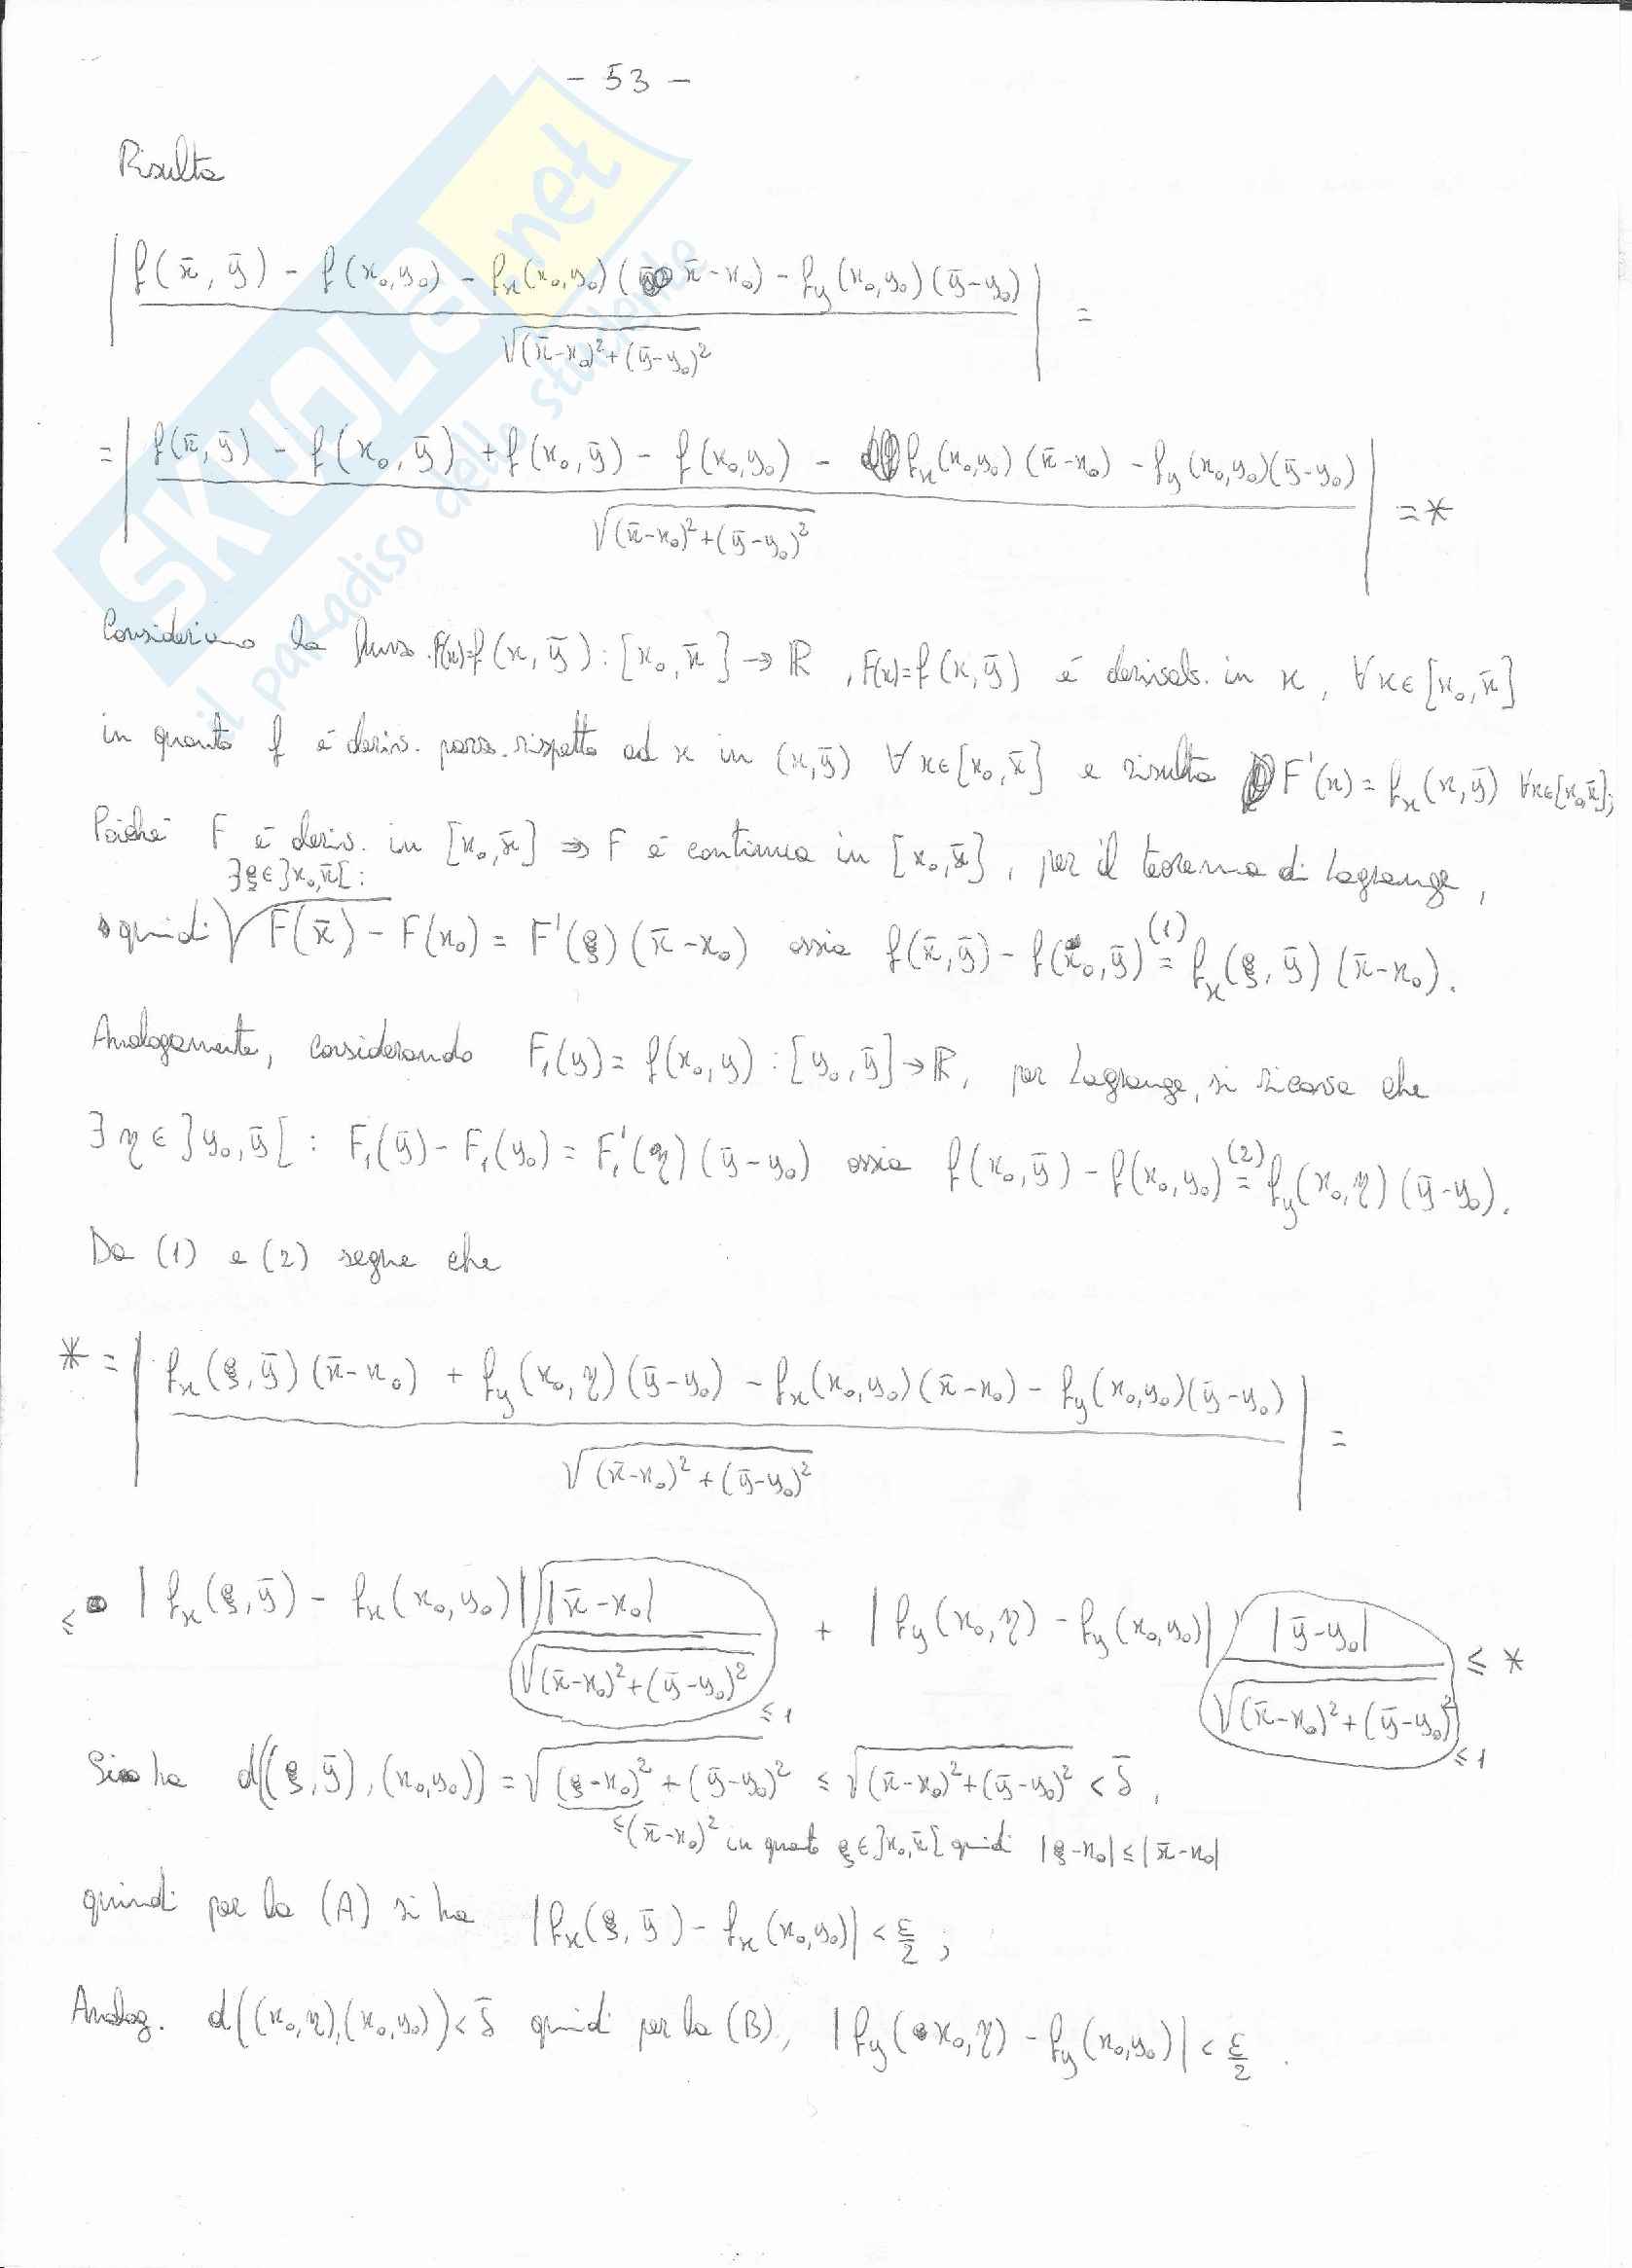 - 53 -
Risulta
| f(x̄, ȳ) - f(x₀,y₀) - fₓ(x₀,y₀)(x̄-x₀) - f_y(x₀,y₀)(ȳ-y₀) | =
√(x̄-x₀)²+(ȳ-y₀)²
= | f(x̄,ȳ) - f(x₀,ȳ) + f(x₀,ȳ) - f(x₀,y₀) - fₓ(x₀,y₀)(x̄-x₀) - f_y(x₀,y₀)(ȳ-y₀) | = *
√(x̄-x₀)²+(ȳ-y₀)²
Consideriamo la funz. F(x)=f(x,ȳ): [x₀,x̄] → ℝ, F(x)=f(x,ȳ) è derivab. in x, ∀x∈[x₀,x̄]
in quanto f è deriv. parz. rispetto ad x in (x,ȳ) ∀x∈[x₀,x̄] e risulta F'(x) = fₓ(x,ȳ) ∀x∈[x₀,x̄];
Poiché F è deriv. in [x₀,x̄] ⇒ F è continua in [x₀,x̄], per il teorema di Lagrange,
∃ξ∈]x₀,x̄[ :
quindi F(x̄) - F(x₀) = F'(ξ)(x̄-x₀) ossia f(x̄,ȳ) - f(x₀,ȳ) =⁽¹⁾ fₓ(ξ,ȳ)(x̄-x₀).
Analogamente, considerando F₁(y) = f(x₀,y) : [y₀,ȳ]→ℝ, per Lagrange, si ricava che
∃ η ∈ ]y₀,ȳ[ : F₁(ȳ) - F₁(y₀) = F₁'(η)(ȳ-y₀) ossia f(x₀,ȳ) - f(x₀,y₀) =⁽²⁾ f_y(x₀,η)(ȳ-y₀).
Da (1) e (2) segue che
* = | fₓ(ξ,ȳ)(x̄-x₀) + f_y(x₀,η)(ȳ-y₀) - fₓ(x₀,y₀)(x̄-x₀) - f_y(x₀,y₀)(ȳ-y₀) | =
√(x̄-x₀)²+(ȳ-y₀)²
≤ |fₓ(ξ,ȳ) - fₓ(x₀,y₀)| |x̄-x₀| + |f_y(x₀,η) - f_y(x₀,y₀)| |ȳ-y₀| ≤ *
√(x̄-x₀)²+(ȳ-y₀)² ≤1 √(x̄-x₀)²+(ȳ-y₀)² ≤1
Si ha d((ξ,ȳ),(x₀,y₀)) = √(ξ-x₀)²+(ȳ-y₀)² ≤ √(x̄-x₀)²+(ȳ-y₀)² < δ̄,
≤(x̄-x₀)² in quanto ξ∈]x₀,x̄[ quindi |ξ-x₀| ≤ |x̄-x₀|
quindi per la (A) si ha |fₓ(ξ,ȳ) - fₓ(x₀,y₀)| < ε/2 ;
Analog. d((x₀,η),(x₀,y₀)) < δ̄ quindi per la (B), |f_y(x₀,η) - f_y(x₀,y₀)| < ε/2 .
SKUOLA.net
il paradiso dello studente